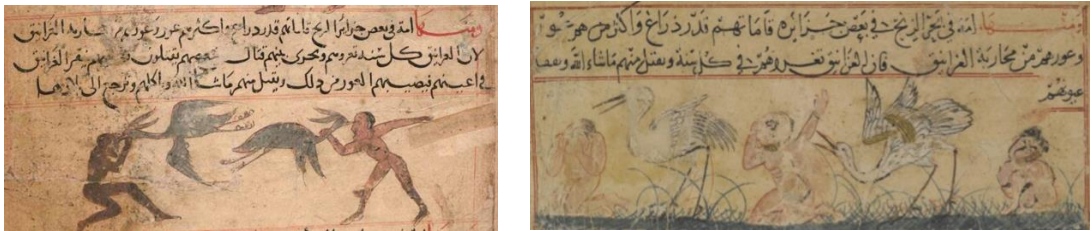 ومنها امة في بعض جزائر الزنج قاماتهم قدر ذراع واكثرهم عور وعورهم من محاربة الغرانيق
لان الغرانيق كل سنة تغزوهم ويجرى بينهم قتال بعضهم يقتلون وبعضهم تنقر الغرانيق
في اعينهم فيصيبهم العور من ذلك ويقتل منهم ما شاء الله وترجع الى
ومنها امة في بحر الزنج في بعض جزائره قاماتهم قدر ذراع واكثرهم عور
وعورهم من محاربة الغرانيق فان الغرانيق تغزوهم في كل سنة ويقتل منهم ما شاء الله
عيونهم